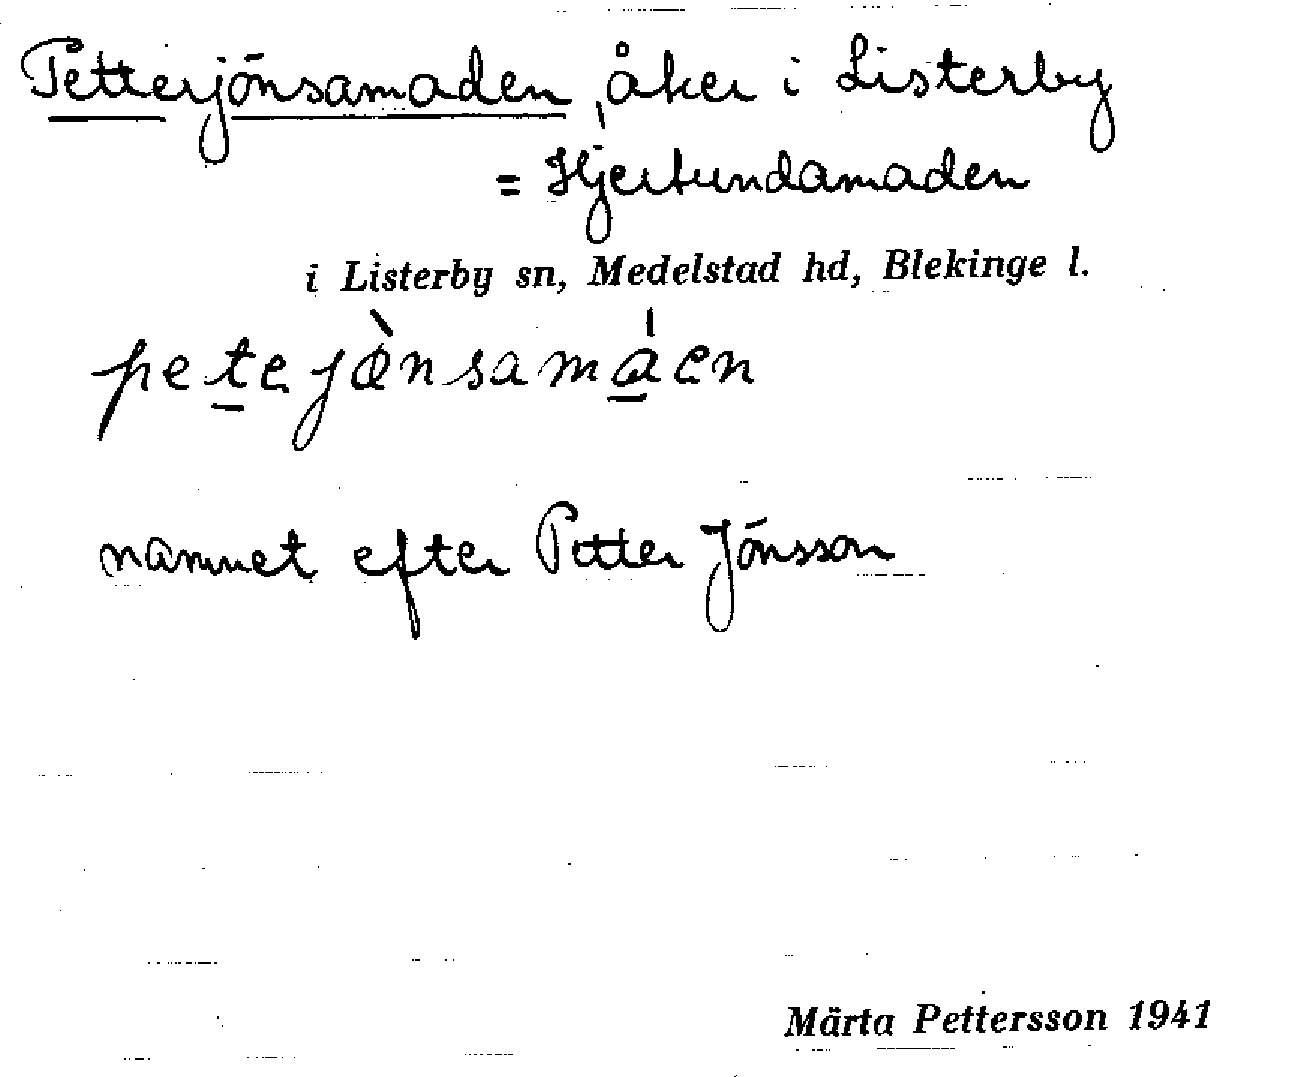 Petterjönsamaden, åker i Listerby
= Hjertundamaden
i Listerby sn, Medelstad hd, Blekinge l.
petejònsamáen
namnet efter Petter Jönsson
Märta Pettersson 1941